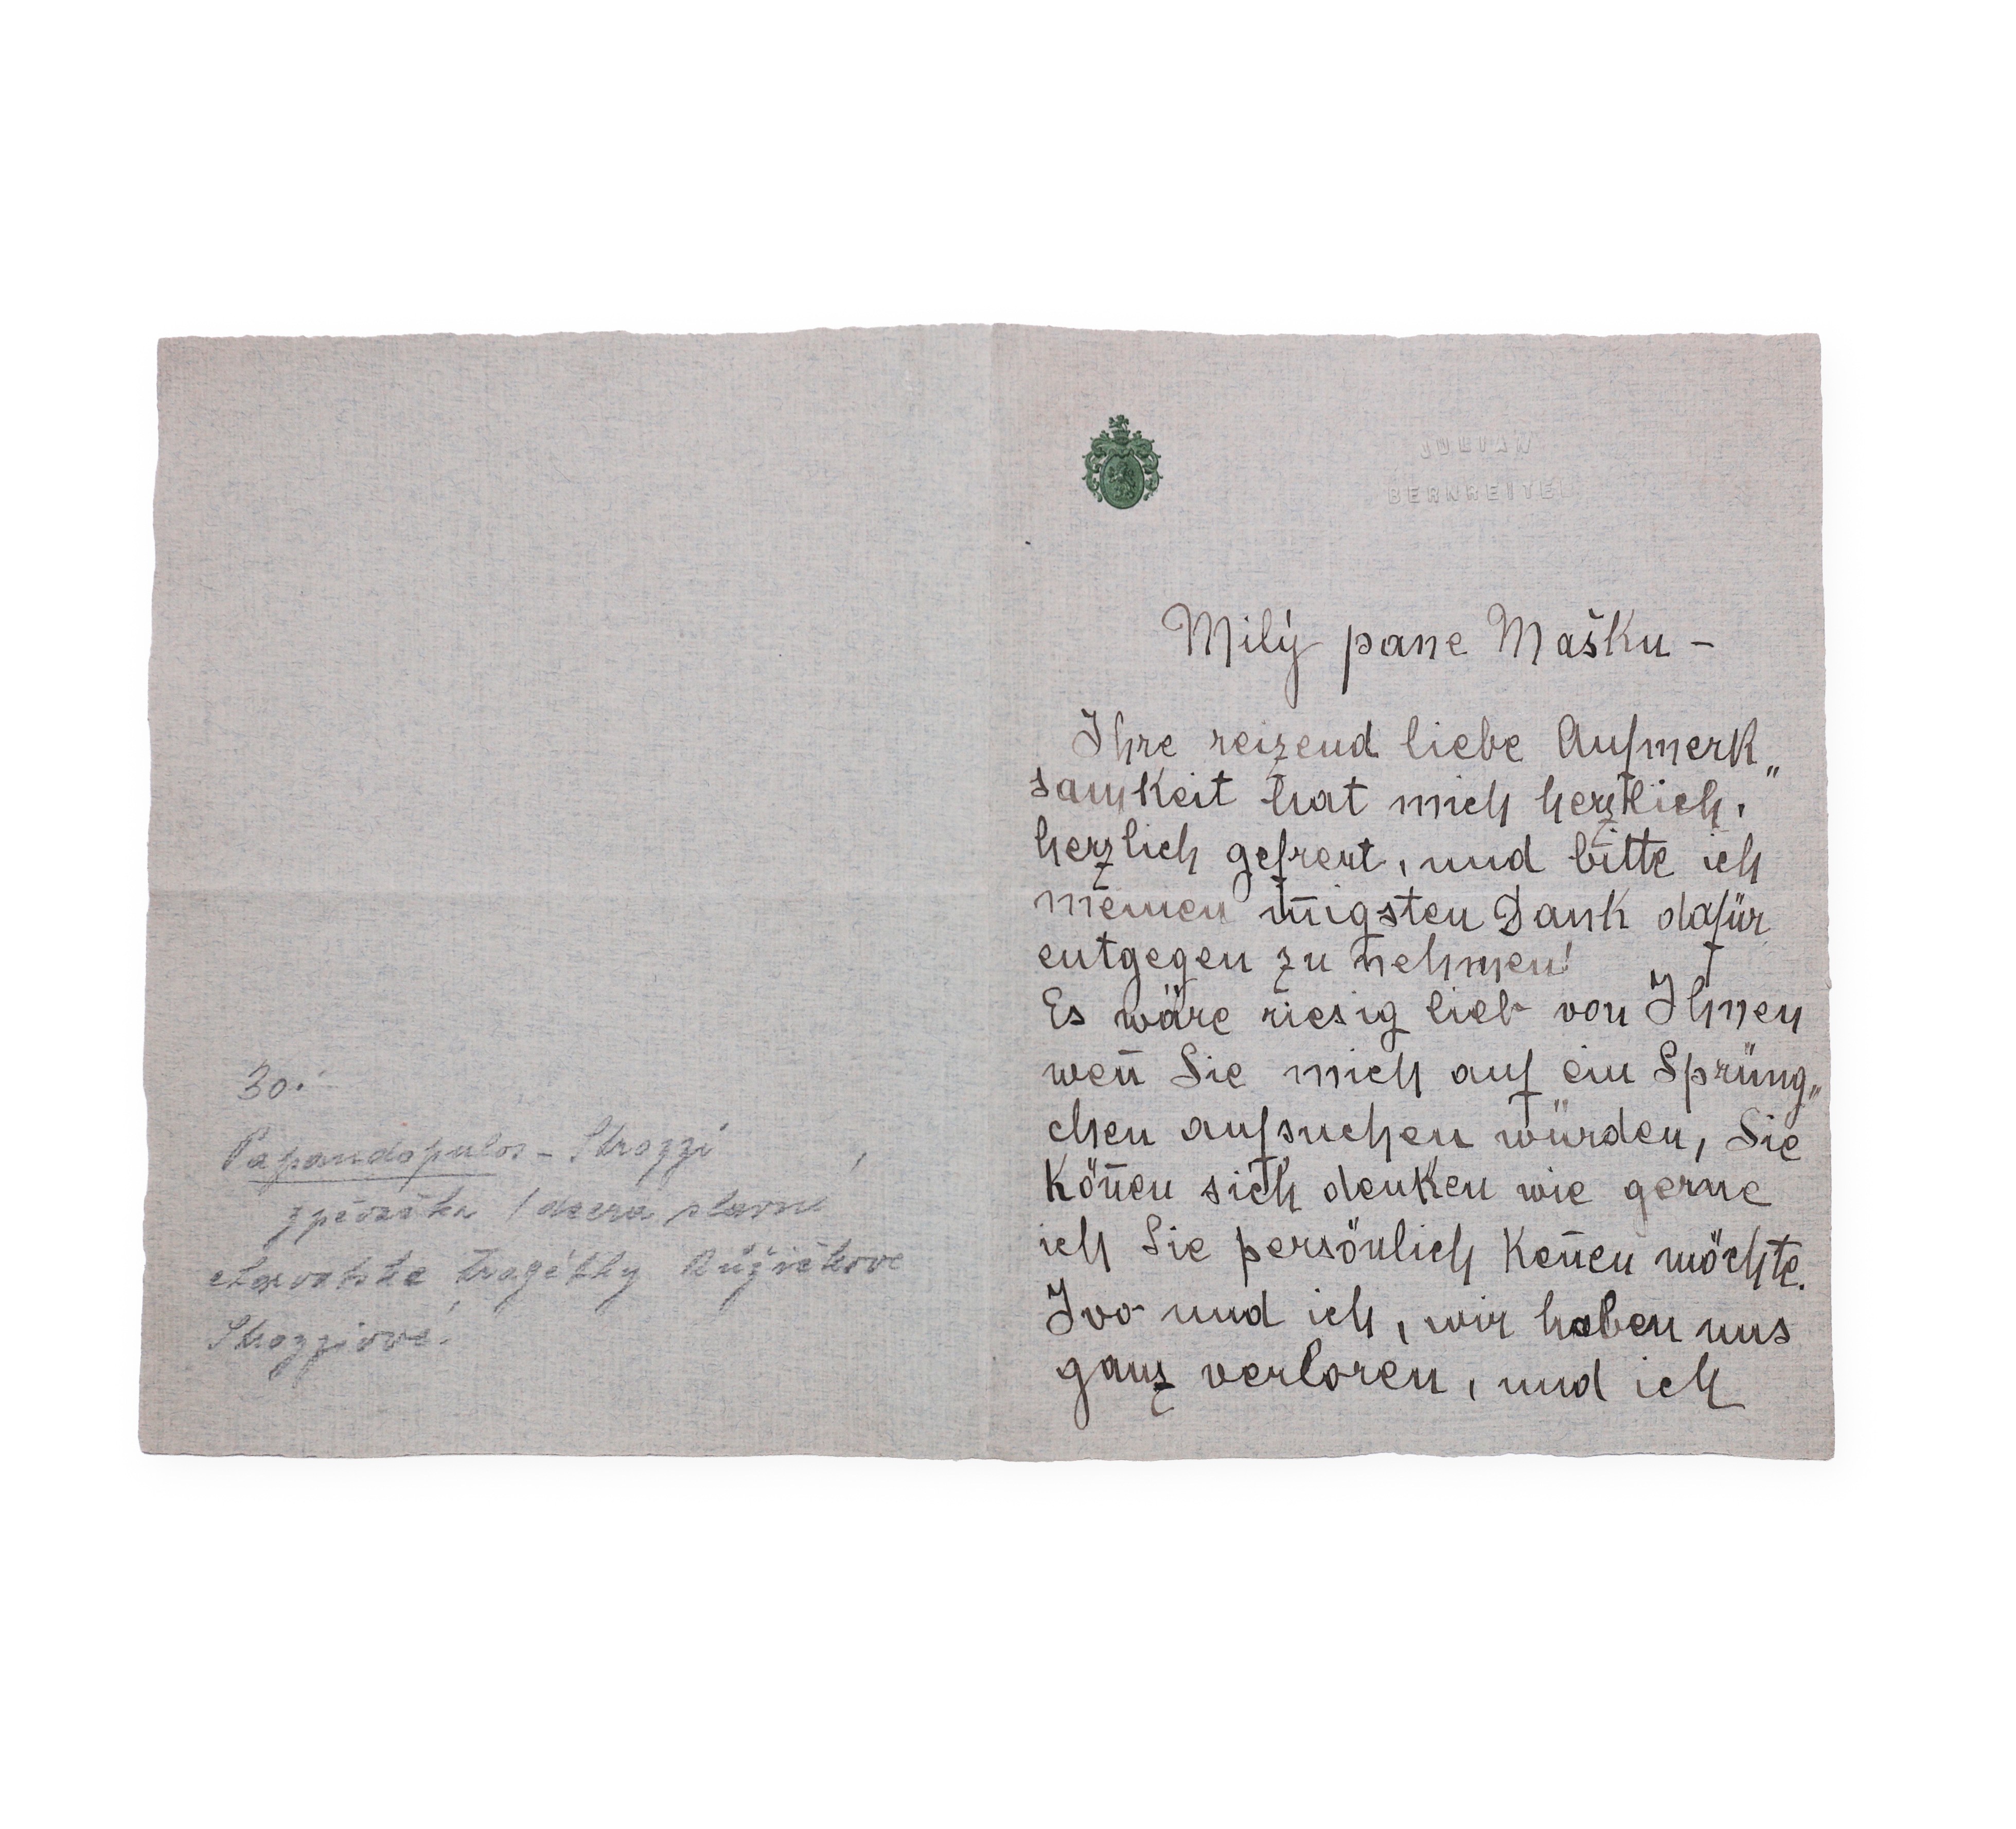 30.-
Papandopulos - Strozzi
zpěvačka / dcera slavné
charvatske tragédky Růžičkove
Strozziové.
JULIAN
BERNREITE
Milý pane Mašku -
Ihre reizend liebe Aufmerk„
samkeit hat mich herzlich,
herzlich gefreut, und bitte ich
meinen iñigsten Dank dafür
entgegen zu nehmen!
Es wäre riesig lieb von Ihnen
weñ Sie mich auf ein Sprüng„
chen aufsuchen würden, Sie
köñen sich denken wie gerne
ich Sie persönlich keñen möchte.
Ivo und ich, wir haben uns
ganz verloren, und ich